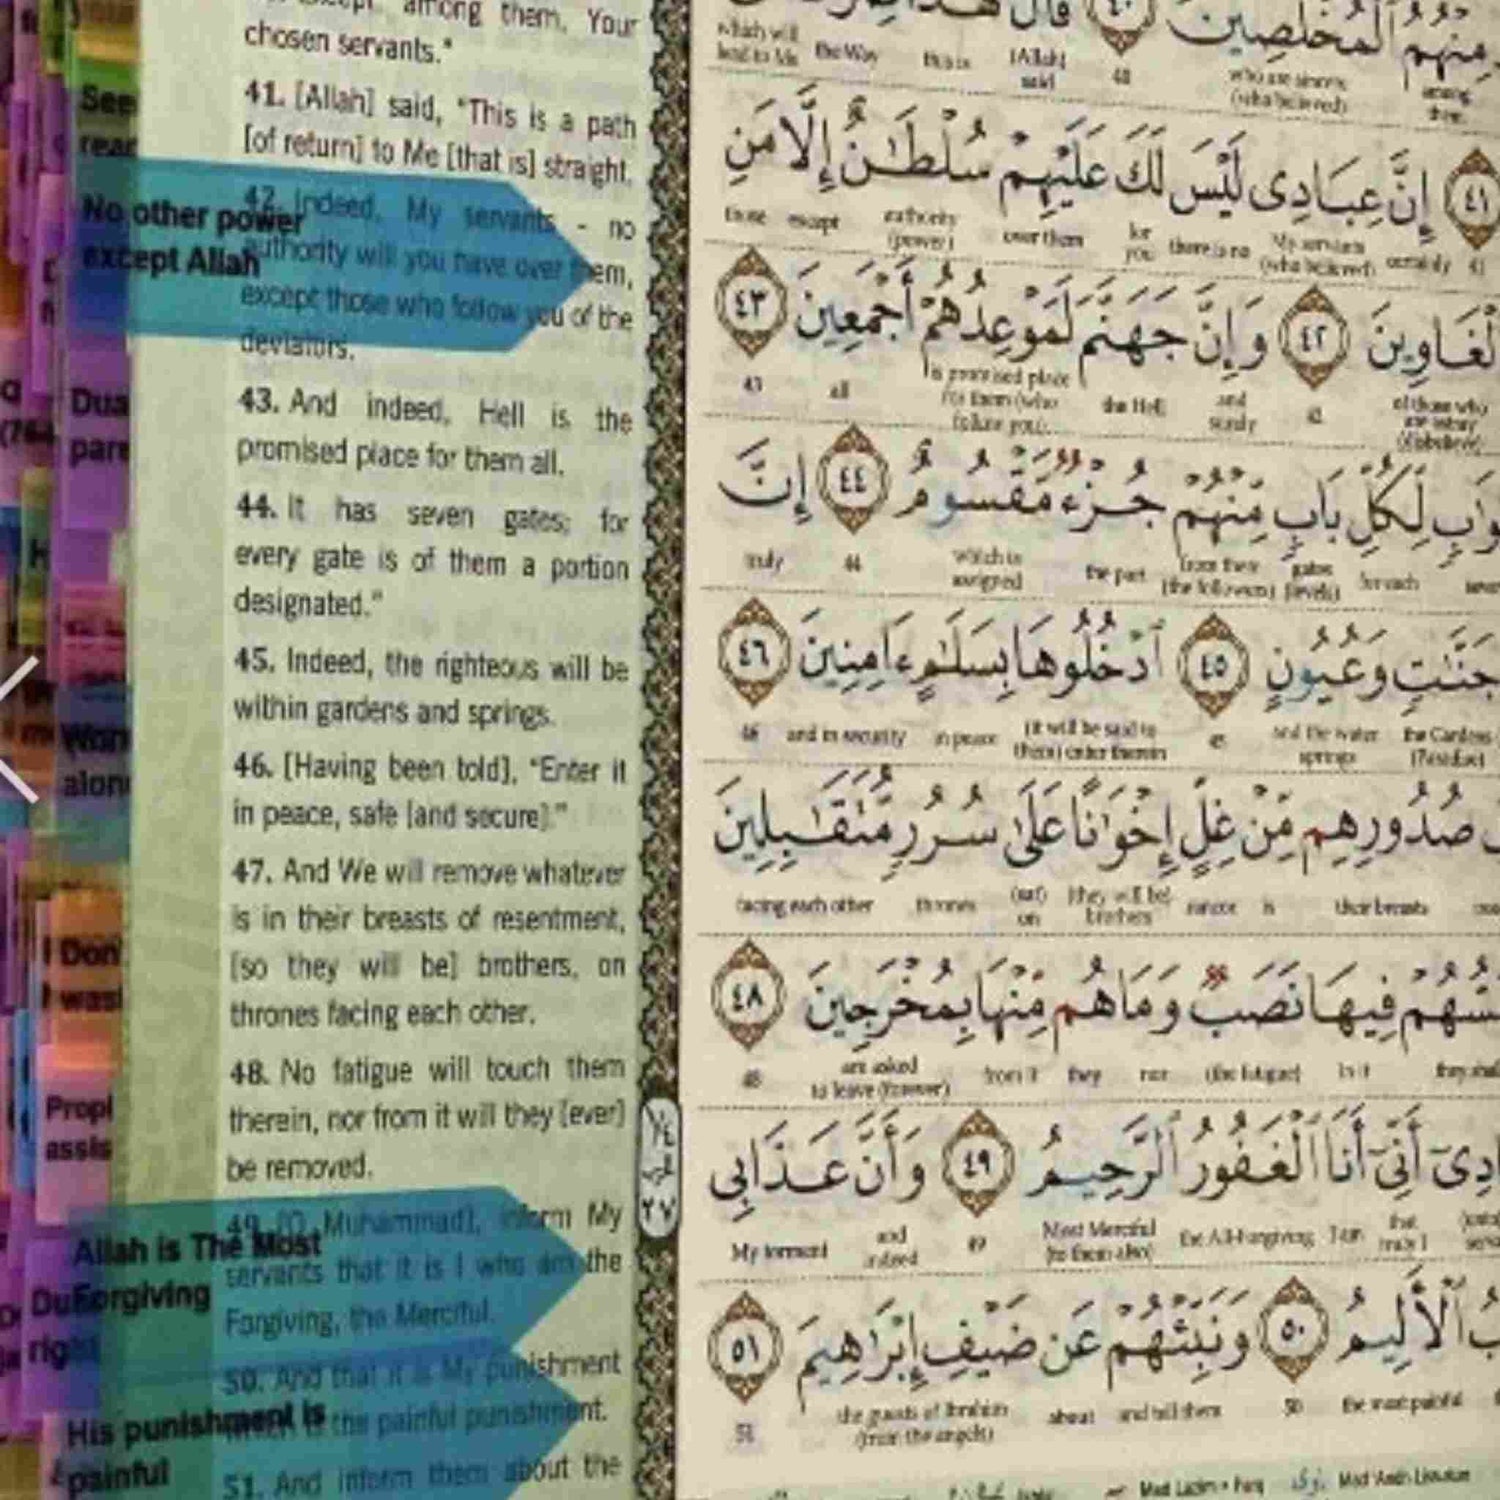 among them, Your
chosen servants."
41. [Allah] said, "This is a path
[of return] to Me [that is] straight.
42. Indeed, My servants - no
authority will you have over them,
except those who follow you of the
deviators.
43. And indeed, Hell is the
promised place for them all.
44. It has seven gates; for
every gate is of them a portion
designated."
45. Indeed, the righteous will be
within gardens and springs.
46. [Having been told], "Enter it
in peace, safe [and secure]."
47. And We will remove whatever
is in their breasts of resentment,
[so they will be] brothers, on
thrones facing each other.
48. No fatigue will touch them
therein, nor from it will they [ever]
be removed.
49. [O Muhammad], inform My
servants that it is I who am the
Forgiving, the Merciful.
50. And that it is My punishment
which is the painful punishment.
51. And inform them about the
See
No other power
except Allah
Dua
pare
alon
Don'
Allah is The Most
Forgiving
His punishment is
painful
مِنْهُمُ ٱلْمُخْلَصِينَ ٤٠ قَالَ هَٰذَا
٤١ إِنَّ عِبَادِى لَيْسَ لَكَ عَلَيْهِمْ سُلْطَٰنٌ إِلَّا مَنِ
those except authority over them for you there is no My servants certainly 41
(power) (who believed)
ٱلْغَاوِينَ ٤٢ وَإِنَّ جَهَنَّمَ لَمَوْعِدُهُمْ أَجْمَعِينَ ٤٣
43 all is promised place the Hell and 42 of those who
for them (who surely are astray
follow you). (disbelieve)
لِكُلِّ بَابٍ مِّنْهُمْ جُزْءٌ مَّقْسُومٌ ٤٤ إِنَّ
truly 44 which is the part from them gates for each
assigned (the followers) (levels)
جَنَّٰتٍ وَعُيُونٍ ٤٥ ٱدْخُلُوهَا بِسَلَٰمٍ ءَامِنِينَ ٤٦
46 and in security in peace (it will be said to 45 and the water the Gardens
them) enter therein springs (Paradise)
صُدُورِهِم مِّنْ غِلٍّ إِخْوَٰنًا عَلَىٰ سُرُرٍ مُّتَقَٰبِلِينَ
facing each other thrones (sat) (they will be) rancor is their breasts
on brothers
فِيهَا نَصَبٌ وَمَا هُم مِّنْهَا بِمُخْرَجِينَ ٤٨
48 are asked from it they nor (the fatigue) in it they shall
to leave (forever)
أَنِّىٓ أَنَا ٱلْغَفُورُ ٱلرَّحِيمُ ٤٩ وَأَنَّ عَذَابِى
My torment and 49 Most Merciful the All-Forgiving I am that
indeed (to them also)
ٱلْأَلِيمُ ٥٠ وَنَبِّئْهُمْ عَن ضَيْفِ إِبْرَٰهِيمَ ٥١
51 the guests of Ibrahim about and tell them 50 the most painful
(from the angels)